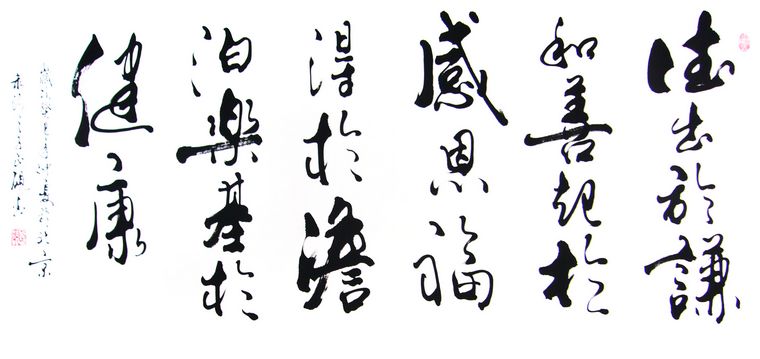 德出於謙
和善起於
感恩福
得於澹
泊樂基於
健康